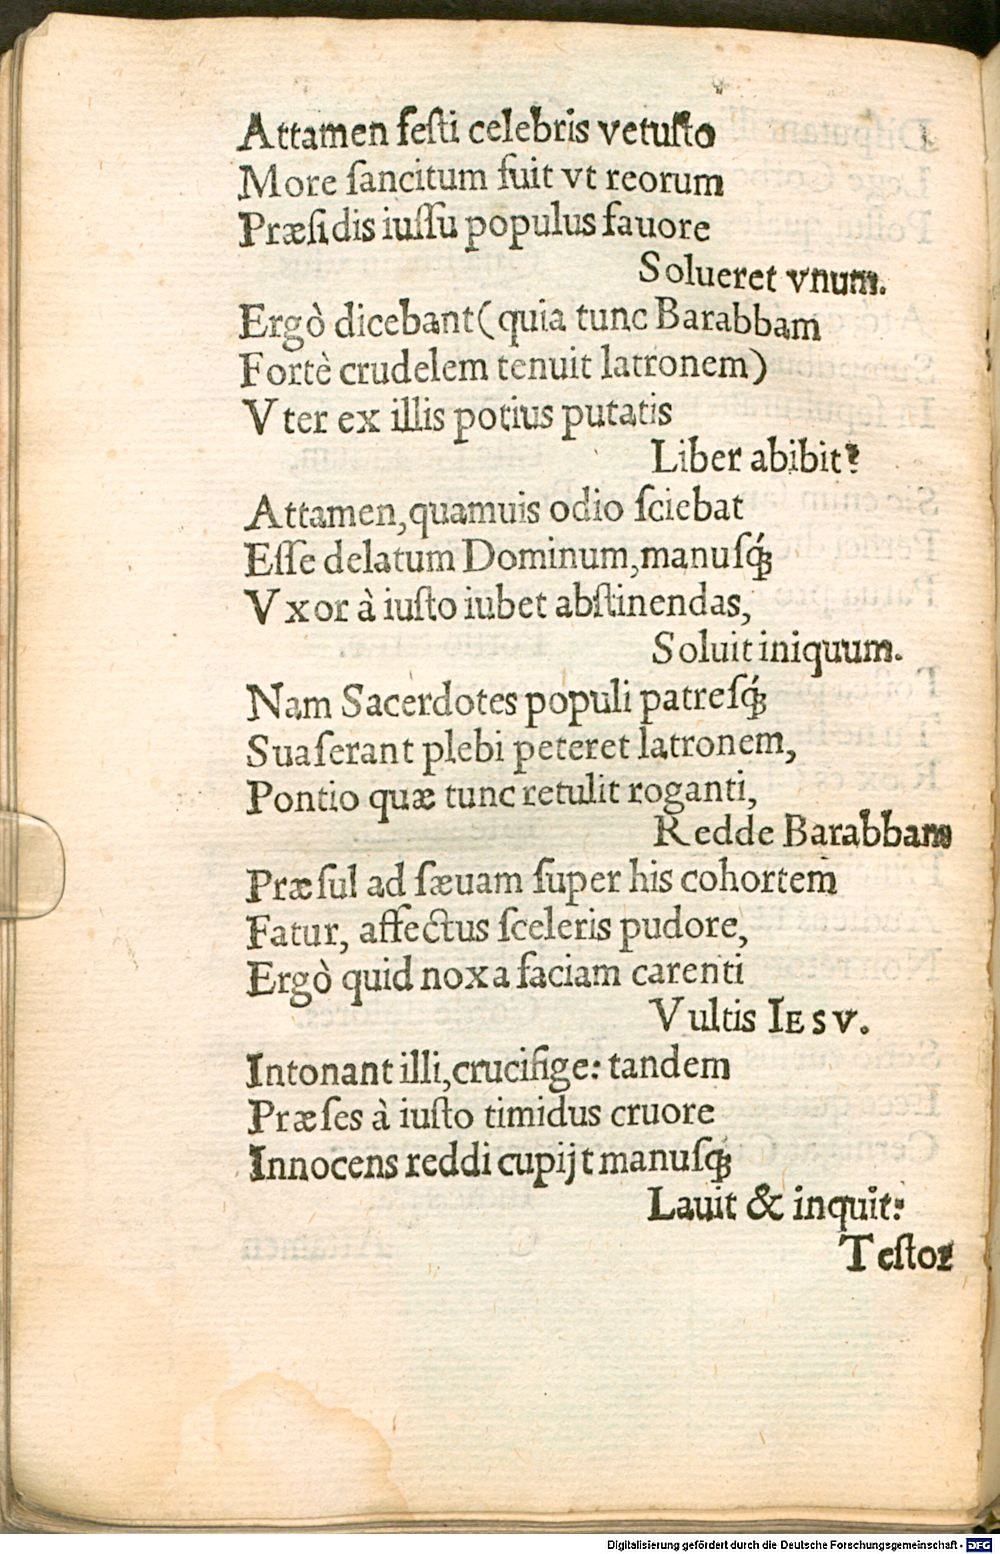 Attamen feſti celebris vetuſto
More ſancitum fuit vt reorum
Præſidis iuſſu populus fauore
Solueret vnum.
Ergò dicebant (quia tunc Barabbam
Fortè crudelem tenuit latronem)
Vter ex illis potius putatis
Liber abibit?
Attamen, quamuis odio ſciebat
Eſſe delatum Dominum, manuſq́;
Vxor à iuſto iubet abſtinendas,
Soluit iniquum.
Nam Sacerdotes populi patreſq́;
Suaſerant plebi peteret latronem,
Pontio quæ tunc retulit roganti,
Redde Barabbam
Præſul ad ſæuam ſuper his cohortem
Fatur, affectus ſceleris pudore,
Ergò quid noxa faciam carenti
Vultis IESV.
Intonant illi, crucifige: tandem
Præſes à iuſto timidus cruore
Innocens reddi cupijt manuſq;
Lauit & inquit:
Teſtor
Digitalisierung gefördert durch die Deutsche Forschungsgemeinschaft - DFG